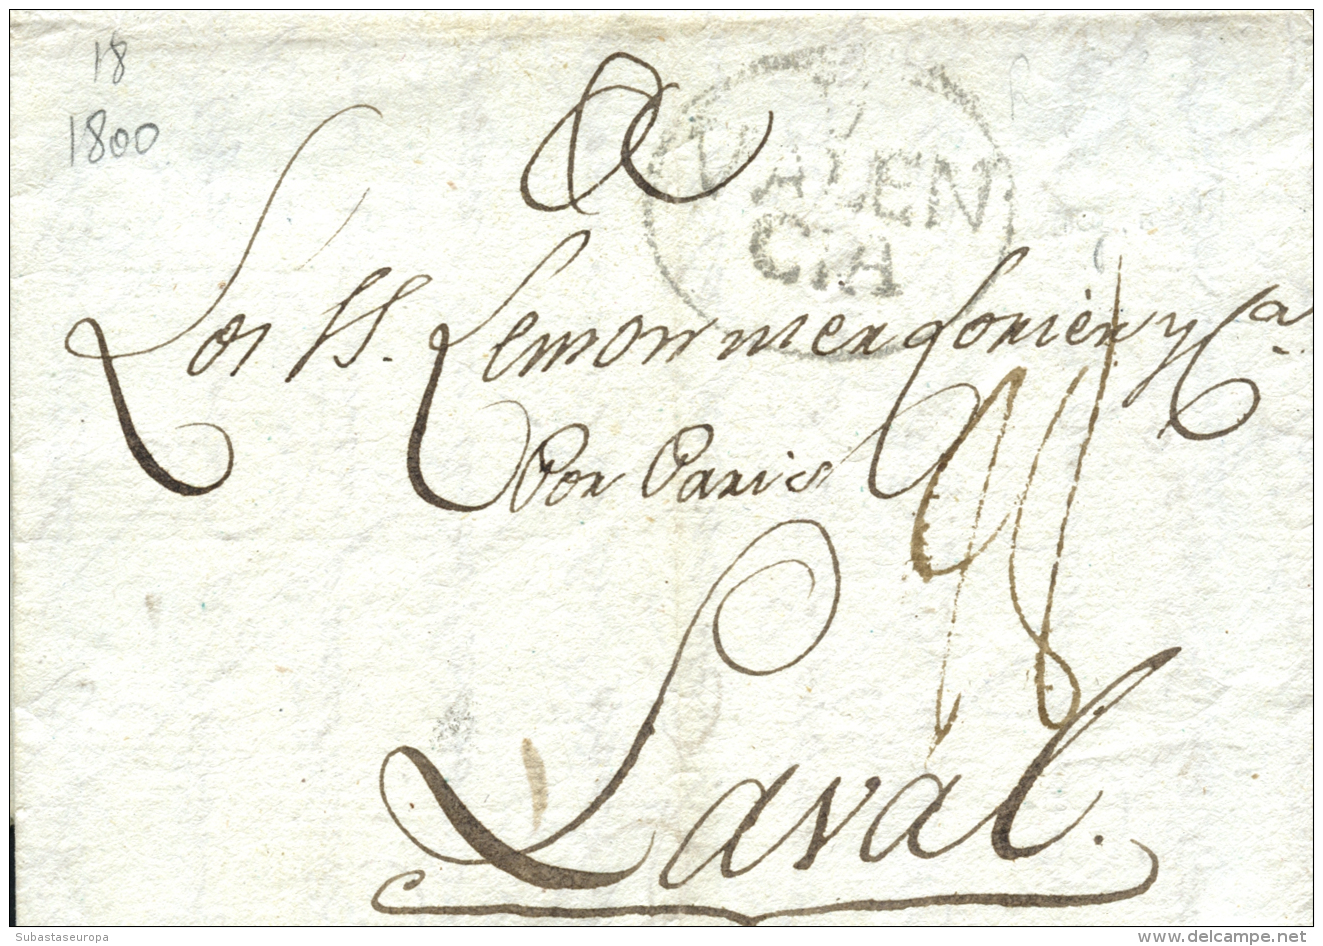 18
1800
A
VALEN
CIA
Los SS. Lemonnier Lorier y Ca.
Por Paris
Laval.
Subastaseuropa
delcampe.net